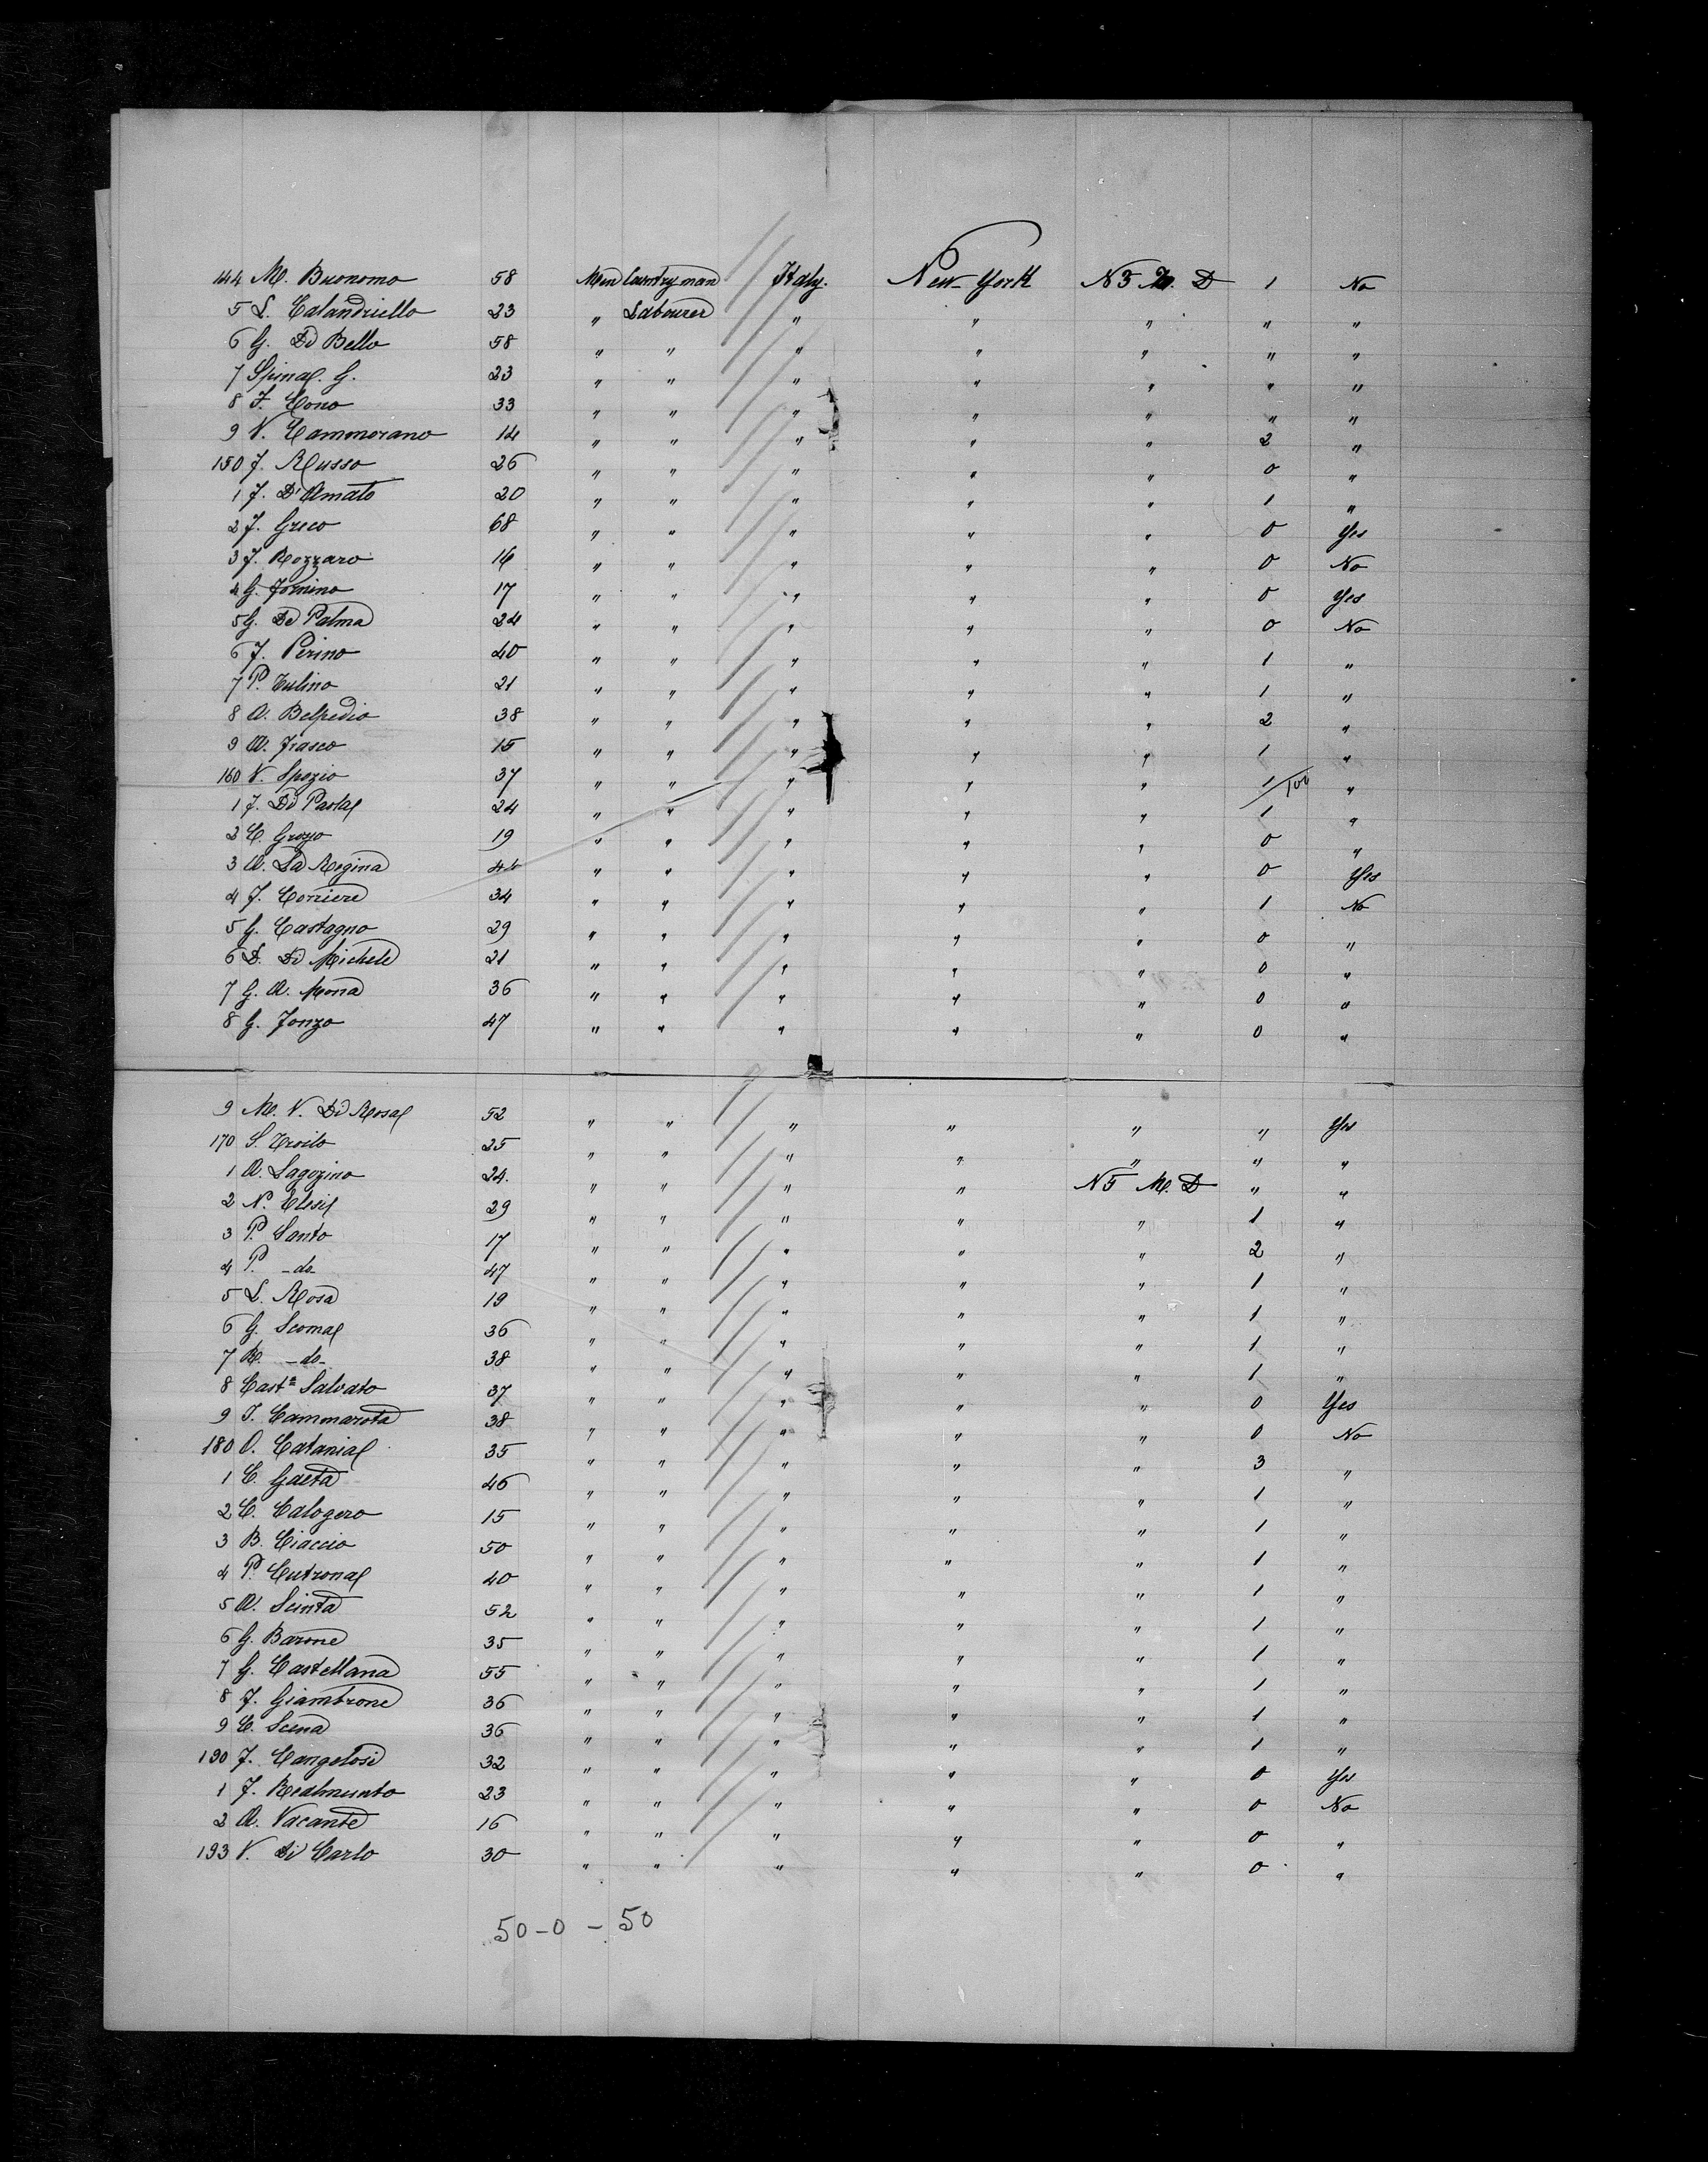 144 M. Buonomo 58 Men Countryman Italy. New-York N3 M. D 1 No
5 L. Calandriello 23 " Labourer " " " " "
6 G. Di Bello 58 " " " " " " "
7 Spina G. 23 " " " " " " "
8 F. Cono 33 " " " " " " "
9 V. Cammorano 14 " " " " " 2 "
150 F. Russo 26 " " " " " 0 "
1 F. D'Amato 20 " " " " " 1 "
2 F. Greco 68 " " " " " 0 Yes
3 F. Rozzaro 16 " " " " " 0 No
4 G. 17 " " " " " 0 Yes
5 G. De Palma 24 " " " " " 0 No
6 F. Perino 40 " " " " " 1 "
7 P. Tulino 21 " " " " " 1 "
8 A. Belpedio 38 " " " " " 2 "
9 A. Frasco 15 " " " " " 1 "
160 V. Spozio 37 " " " " " 1/100 "
1 F. Di Paola 24 " " " " " 1 "
2 C. 19 " " " " " 0 "
3 A. La Regina " " " " " 0 Yes
4 F. Corriere 34 " " " " " 1 No
5 G. Castagno 29 " " " " " 0 "
6 D. Di Michele 21 " " " " " 0 "
7 G. A. Mona 36 " " " " " 0 "
8 G. Fonzo 47 " " " " " 0 "
9 M. V. Di Rosa 52 " " " " " " Yes
170 S. Troilo 25 " " " " " " "
1 A. Lagozino 24. " " " " N5 M. D " "
2 N. Elesi 29 " " " " " 1 "
3 P. Santo 17 " " " " " 2 "
4 P. -do- 47 " " " " " 1 "
5 L. Rosa 19 " " " " " 1 "
6 G. Scoma 36 " " " " " 1 "
7 R. -do- 38 " " " " " 1 "
8 Cast. Salvato 37 " " " " " 0 Yes
9 F. Cammarota 38 " " " " " 0 No
180 O. Catania 35 " " " " " 3 "
1 C. Gaeta 46 " " " " " 1 "
2 C. Calogero 15 " " " " " 1 "
3 B. Ciaccio 50 " " " " " 1 "
4 P. Cutrona 40 " " " " " 1 "
5 A. Scinta 52 " " " " " 1 "
6 G. Barone 35 " " " " " 1 "
7 G. Castellana 55 " " " " " 1 "
8 F. Giambrone 36 " " " " " 1 "
9 C. Scena 36 " " " " " 1 "
190 F. Cangelosi 32 " " " " " 0 Yes
1 F. Realmunto 23 " " " " " 0 No
2 A. Vacante 16 " " " " " 0 "
193 V. Di Carlo 30 " " " " " 0 "
50-0-50